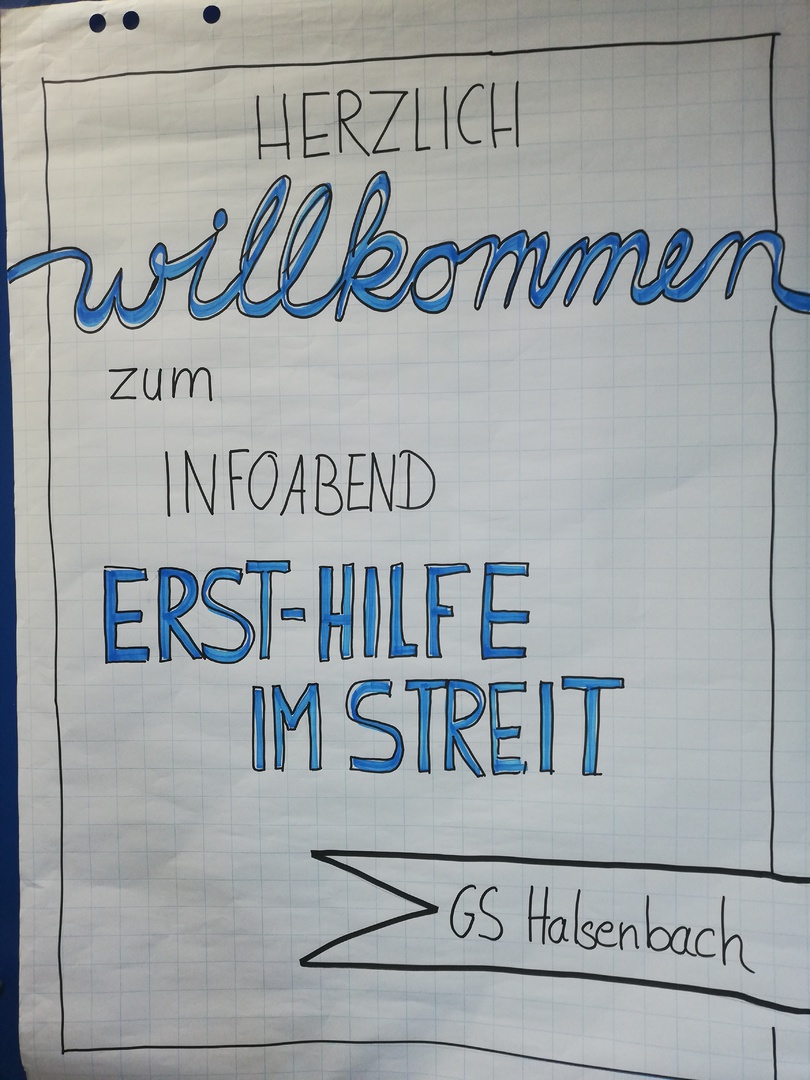 HERZLICH
willkommen
zum
INFOABEND
ERST-HILFE
IM STREIT
GS Halsenbach